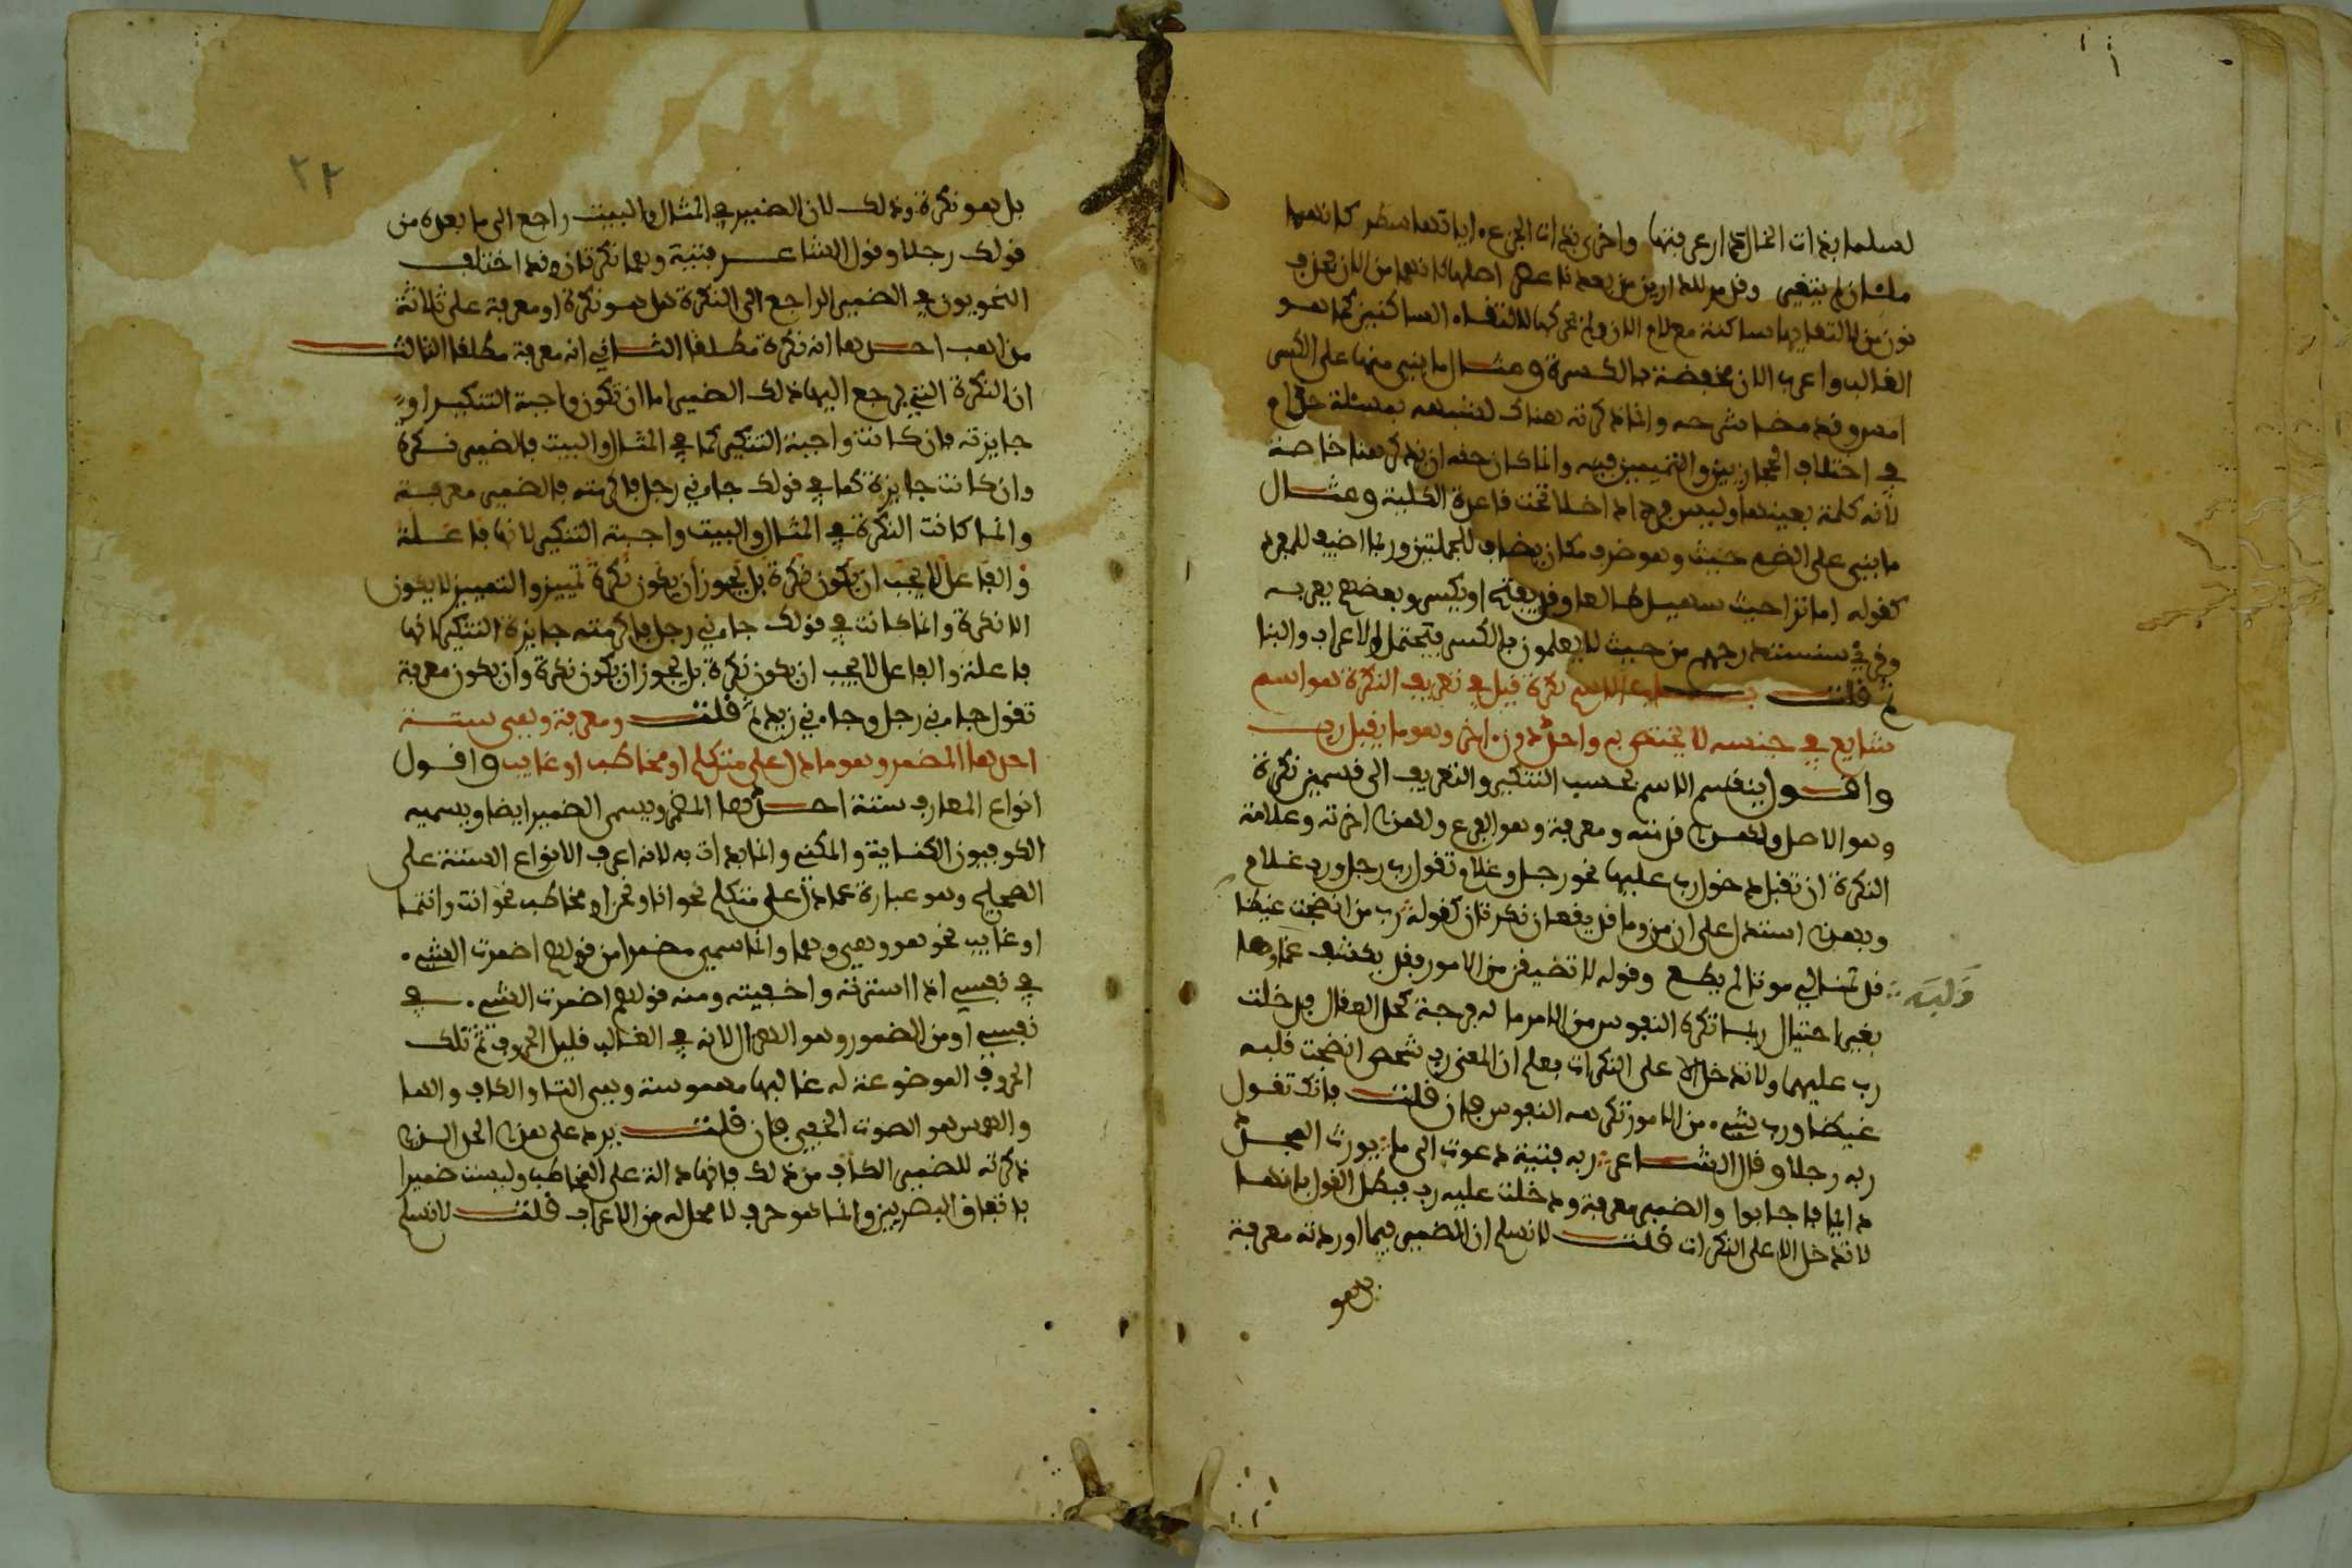 لسلما بذات الخال دار عرفتها واخرى بذات الجزع ءاياتها سطر كانهما
ملان لم يتغيرا وقد مر للدارين من بعدنا عصر اصلها كانهما من الان فحذف
نون من لالتقايها ساكنة مع لام الان ولم يحركها لالتقاء الساكنين كما هو
الغالب واعرب الان فخفضه بالكسرة ومثال ما بني منها على الكسر
امس وقد مضا شرحه وانما ذكرته هناك لشبهه بمسئلة حذام
في اختلاف الحجازيين والتميميين فيه وانما كان حقه ان يذكر هنا خاصة
لانه كلمة بعينها وليس فردا داخلا تحت قاعدة الكلية ومثال
ما بني على الضم حيث وهو ضرف مكان يضاف للجملتين وربما اضيف للمفرد
كقوله اما ترا حيث سهيل طالعا وقد يفتح او يكسر وبعضهم يعربه
وقرئ سنستدرجهم من حيث لا يعلمون بالكسر فيحتمل الاعراب والبنا
ثم قلت الاسم نكرة قيل في تعريف النكرة هو اسم
شايع في جنسه لا يختص به واحد دون ءاخر وهو ما يقبل رب
واقول ينقسم الاسم بحسب التنكير والتعريف الى قسمين نكرة
وهو الاصل ولهذا قدمته ومعرفة وهو الفرع ولهذا اخرته وعلامة
النكرة ان تقبل دخول رب عليها نحو رجل وغلام تقول رب رجل ورب غلام
وبهذا استدل على ان من وما قد يقعان نكرتان كقوله رب من انضجت غيضا
قلبه
قد تمنا لي موتا لم يطع وقوله لا تضيقن من الامور فقد يكشف غماوها
بغير احتيال ربما تكره النفوس من الامر ما له فرجة كحل العقال فدخلت
رب عليهما ولا تدخل الا على النكرات فعلم ان المعنى رب شخص انضجت قلبه
غيضا ورب شيء من الامور تكرهه النفوس فان قلت فانك تقول
ربه رجلا وقال الشاعر ربه فتية دعوت الى ما يورث المجد
دايما فاجابوا والضمير معرفة ودخلت عليه رب فبطل القول بانها
لا تدخل الا على النكرات قلت لا نسلم ان الضمير فيما اوردته معرفة
بل هو
٢٢
بل هو نكرة وذلك لان الضمير في المثال والبيت راجع الى ما بعده من
قولك رجلا وقول الشاعر فتية وهما نكرتان وقد اختلف
النحويون في الضمير الراجع الى النكرة هل هو نكرة او معرفة على ثلاثة
مذاهب احدها انه نكرة مطلقا الثاني انه معرفة مطلقا الثالث
ان النكرة التي يرجع اليها ذلك الضمير اما ان تكون واجبة التنكير او
جايزته فان كانت واجبة التنكير كما في المثال والبيت فالضمير نكرة
وان كانت جايزة كما في قولك جاءني رجل فاكرمته فالضمير معرفة
وانما كانت النكرة في المثال والبيت واجبة التنكير لانها فاعلة
والفاعل لا يجب ان يكون نكرة بل يجوز ان يكون نكرة تمييز والتمييز لا يكون
الا نكرة وانما كانت في قولك جاءني رجل فاكرمته جايزة التنكير لانها
فاعلة والفاعل لا يجب ان يكون نكرة بل يجوز ان يكون نكرة وان يكون معرفة
تقول جاءني رجل وجاءني زيد ثم قلت ومعرفة وهي ستة
احدها المضمر وهو ما دل على متكلم او مخاطب او غايب واقول
انواع المعارف ستة احدها المضمر ويسمى الضمير ايضا ويسميه
الكوفيون الكناية والمكني وانما بدات به لانه اعرف الانواع الستة على
الصحيح وهو عبارة عما دل على متكلم نحو انا ونحن او مخاطب نحو انت وانتما
او غايب نحو هو وهي وهما وانما سمي مضمرا من قولهم اضمرت الشيء
في نفسي اذا استرته واخفيته ومنه قولهم اضمرت الشيء في
نفسي او من الضمور وهو الهزال لانه في الغالب قليل الحروف ثم تلك
الحروف الموضوعة له غالبها مهموسة وهي التا والكاف والها
والهمس هو الصوت الخفي فان قلت يرد على هذا الحد الذي
ذكرته للضمير الكاف من ذلك فانها دالة على المخاطب وليست ضميرا
باتفاق البصريين وانما هو حرف لا محل له من الاعراب قلت لا نسلم